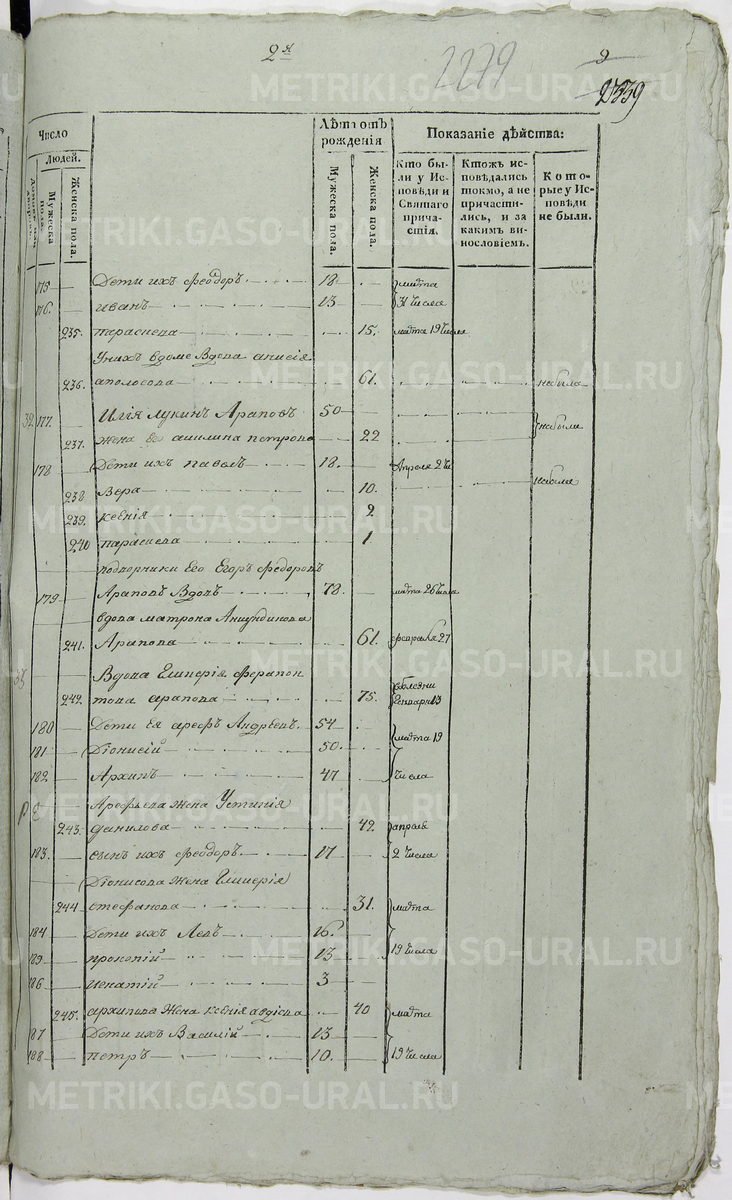 2я
2279
9
2339
METRIKI.GASO-URAL.RU
Число
Людей.
Мужеска пола.
Женска пола.
Лѣтъ отъ рожденія
Мужеска пола.
Женска пола.
Показаніе дѣйства:
Кто бы-
ли у Ис-
повѣди и
Святаго
прича-
стія.
Ктожъ ис-
повѣдались
токмо, а не
причасти-
лись, и за
какимъ ви-
нословіемъ.
Кото-
рые у Ис-
повѣди
не были.
175 Дети ихъ Феодоръ 18. марта
176. иванъ 13 31 Числа
235. параскева 15. марта 19 Числа
Унихъ вдоме Вдова анисія
236. аполосова 61. небыла
39. 177. Илія Лукинъ Араповъ 50
237. жена Ево акилина петрова 22 небыли
178 Дети ихъ павелъ 18. Апреля 2 чи
238 Вера 10. небыла
239. ксенія 2
240 параскева 1
Егоръ Федоровъ
179 Араповъ Вдовъ 78. марта 26 Числа
вдова матрона
241. Арапова 61. февраля 27
Вдова Емперія ферапон
242. това арапова 75. вболезни Генваря 13
180 Дети Ея арефъ Андреевъ. 54 марта 19
181 Діонисій 50.
182. Архипъ 47 Числа
Арефьева жена Устинія
243. данилова 42. апреля
183. сынъ ихъ Феодоръ 17 2 Числа
Діонисова жена Емперія
244 стефанова 31. марта
184 Дети ихъ Левъ 16.
185 прокопій 13 19 Числа
186 игнатій 3
245. архипова жена ксенія авдіева 40 марта
187 Дети ихъ Василій 13
188 петръ 10. 19 Числа